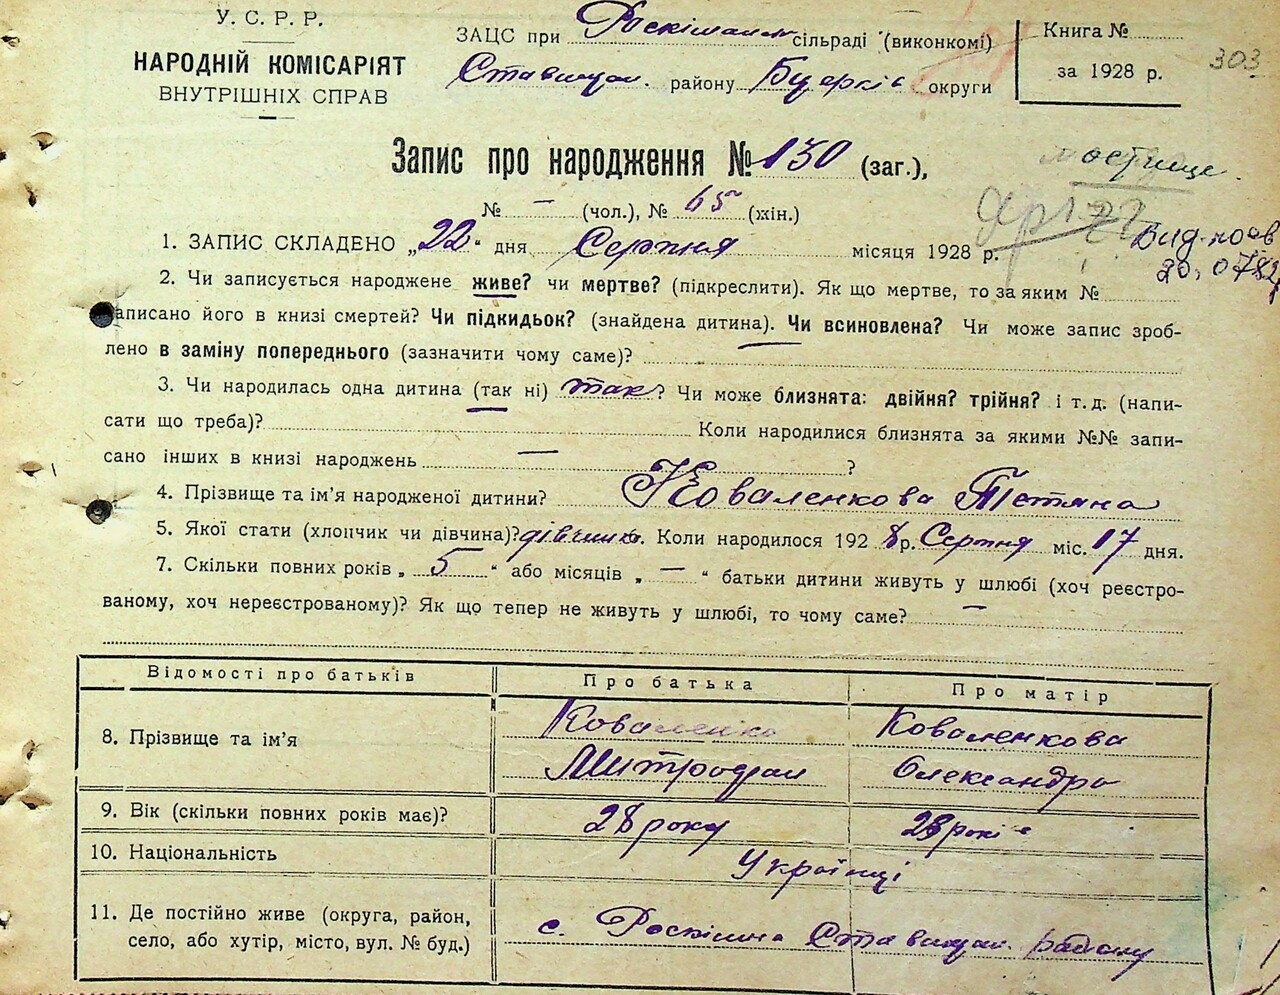 У. С. Р. Р.
НАРОДНІЙ КОМІСАРІЯТ
ВНУТРІШНІХ СПРАВ
ЗАЦС при сільраді (виконкомі)
Ставищан. району Бцерків округи
Книга №
за 1928 р.
303
Запис про народження № 130 (заг.),
№ — (чол.), № 65 (жін.)
1. ЗАПИС СКЛАДЕНО „22“ дня Серпня місяця 1928 р.
2. Чи записується народжене живе? чи мертве? (підкреслити). Як що мертве, то за яким №
записано його в книзі смертей? Чи підкидьок? (знайдена дитина). Чи всиновлена? Чи може запис зроб-
лено в заміну попереднього (зазначити чому саме)?
3. Чи народилась одна дитина (так ні) так? Чи може близнята: двійня? трійня? і т. д. (напи-
сати що треба)? Коли народилися близнята за якими №№ запи-
сано інших в книзі народжень — ?
4. Прізвище та ім’я народженої дитини? Коваленкова Тетяна
5. Якої стати (хлопчик чи дівчина)? дівчинка. Коли народилося 1928 р. Серпня міс. 17 дня.
7. Скільки повних років „ 5 “ або місяців „ — “ батьки дитини живуть у шлюбі (хоч реєстро-
ваному, хоч нереєстрованому)? Як що тепер не живуть у шлюбі, то чому саме? —
Відомості про батьків Про батька Про матір
8. Прізвище та ім’я Коваленко Коваленкова
Митрофан Олександра
9. Вік (скільки повних років має)? 28 року 28 років
10. Національність Українці
11. Де постійно живе (округа, район,
село, або хутір, місто, вул. № буд.) с. Роскішна Ставищан. району